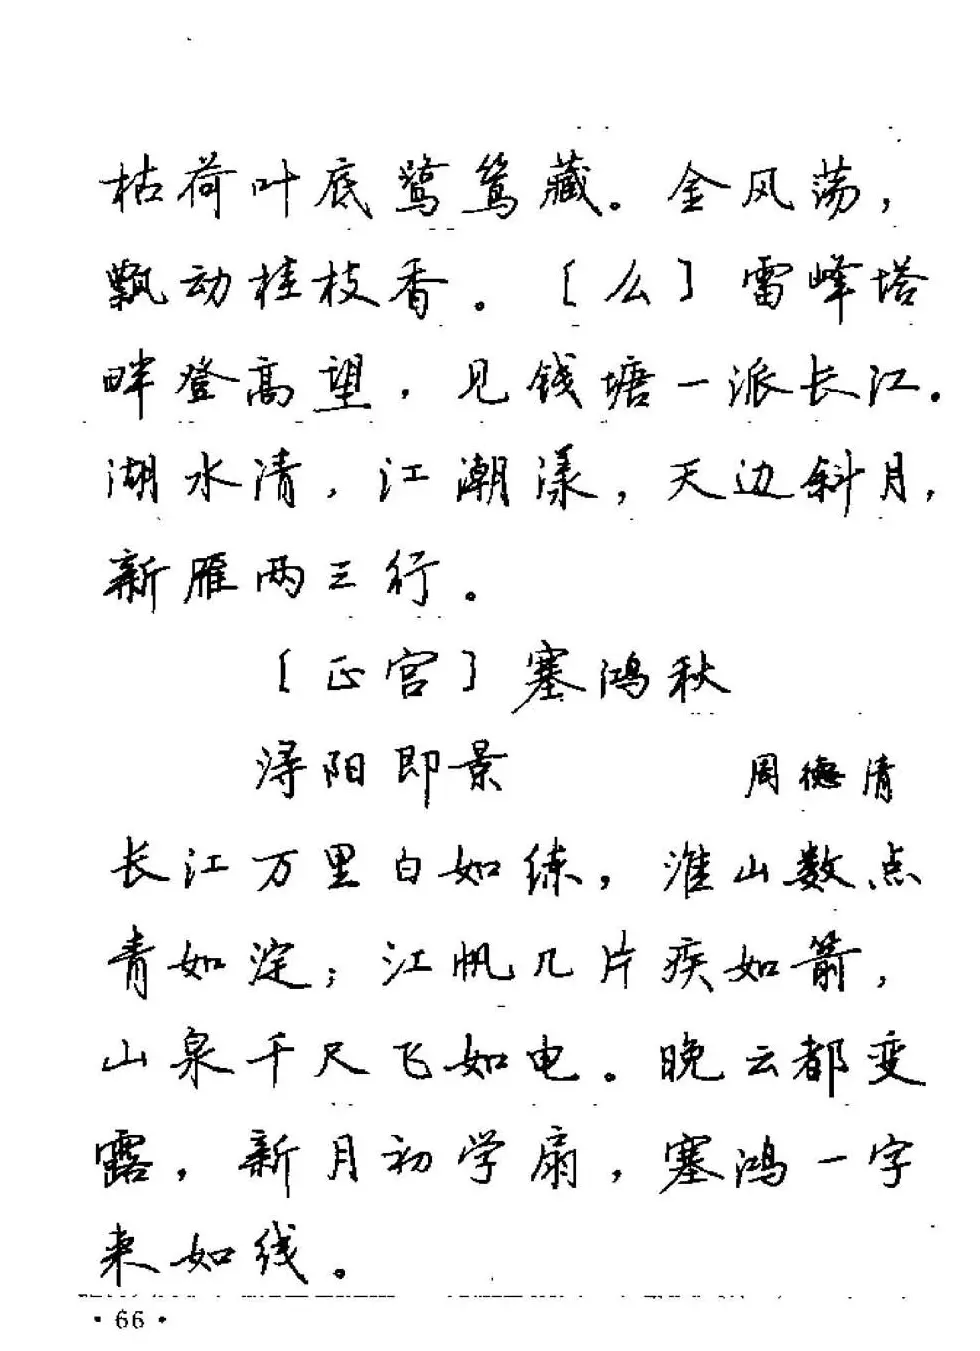 枯荷叶底鹭鸶藏。金风荡，
飘动桂枝香。〔么〕雷峰塔
畔登高望，见钱塘一派长江。
湖水清，江潮漾，天边斜月，
新雁两三行。
〔正宫〕塞鸿秋
浔阳即景 周德清
长江万里白如练，淮山数点
青如淀；江帆几片疾如箭，
山泉千尺飞如电。晚云都变
露，新月初学扇，塞鸿一字
来如线。
·66·